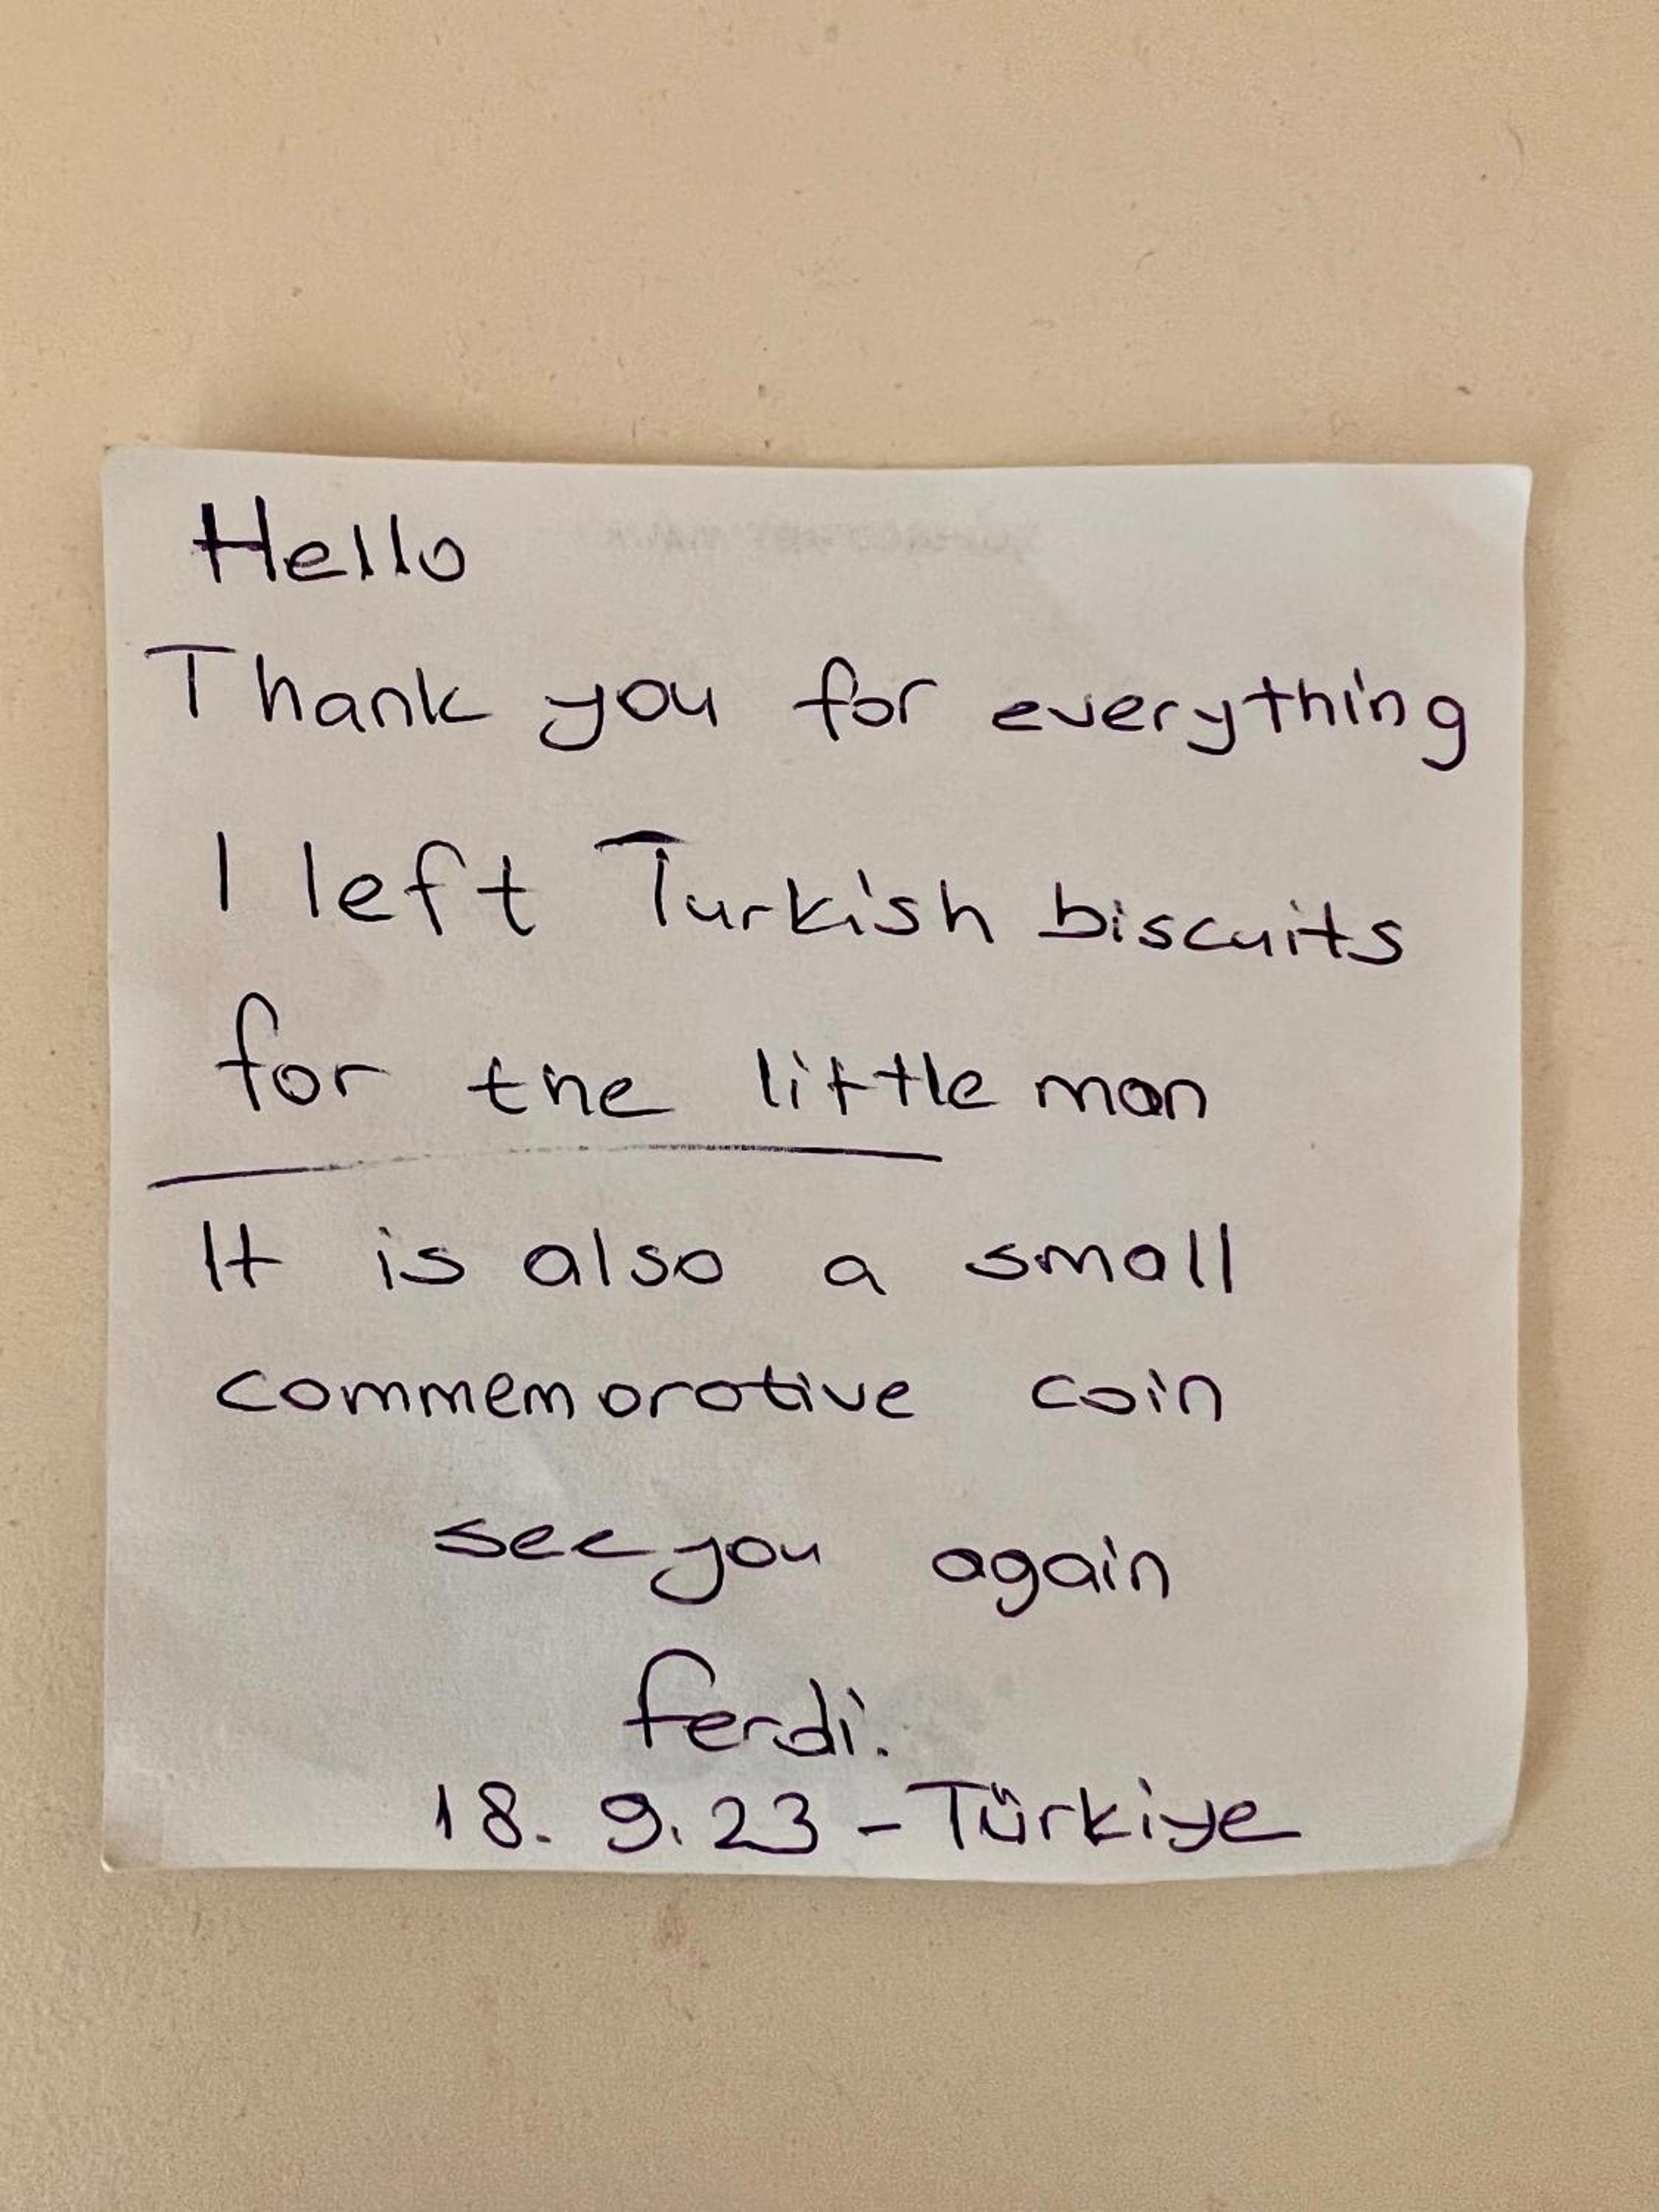 Hello
Thank you for everything
I left Turkish biscuits
for the little man
It is also a small
commemorative coin
see you again
ferdi.
18. 9. 23 - Türkiye